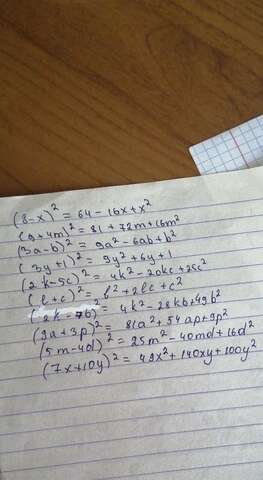 (8-x)² = 64 - 16x + x²
(9+4m)² = 81 + 72m + 16m²
(3a-b)² = 9a² - 6ab + b²
(3y+1)² = 9y² + 6y + 1
(2k-5c)² = 4k² - 20kc + 25c²
(l+c)² = l² + 2lc + c²
(2k-7b) = 4k² - 28kb + 49b²
(9a+3p)² = 81a² + 54ap + 9p²
(5m-4d)² = 25m² - 40md + 16d²
(7x+10y)² = 49x² + 140xy + 100y²